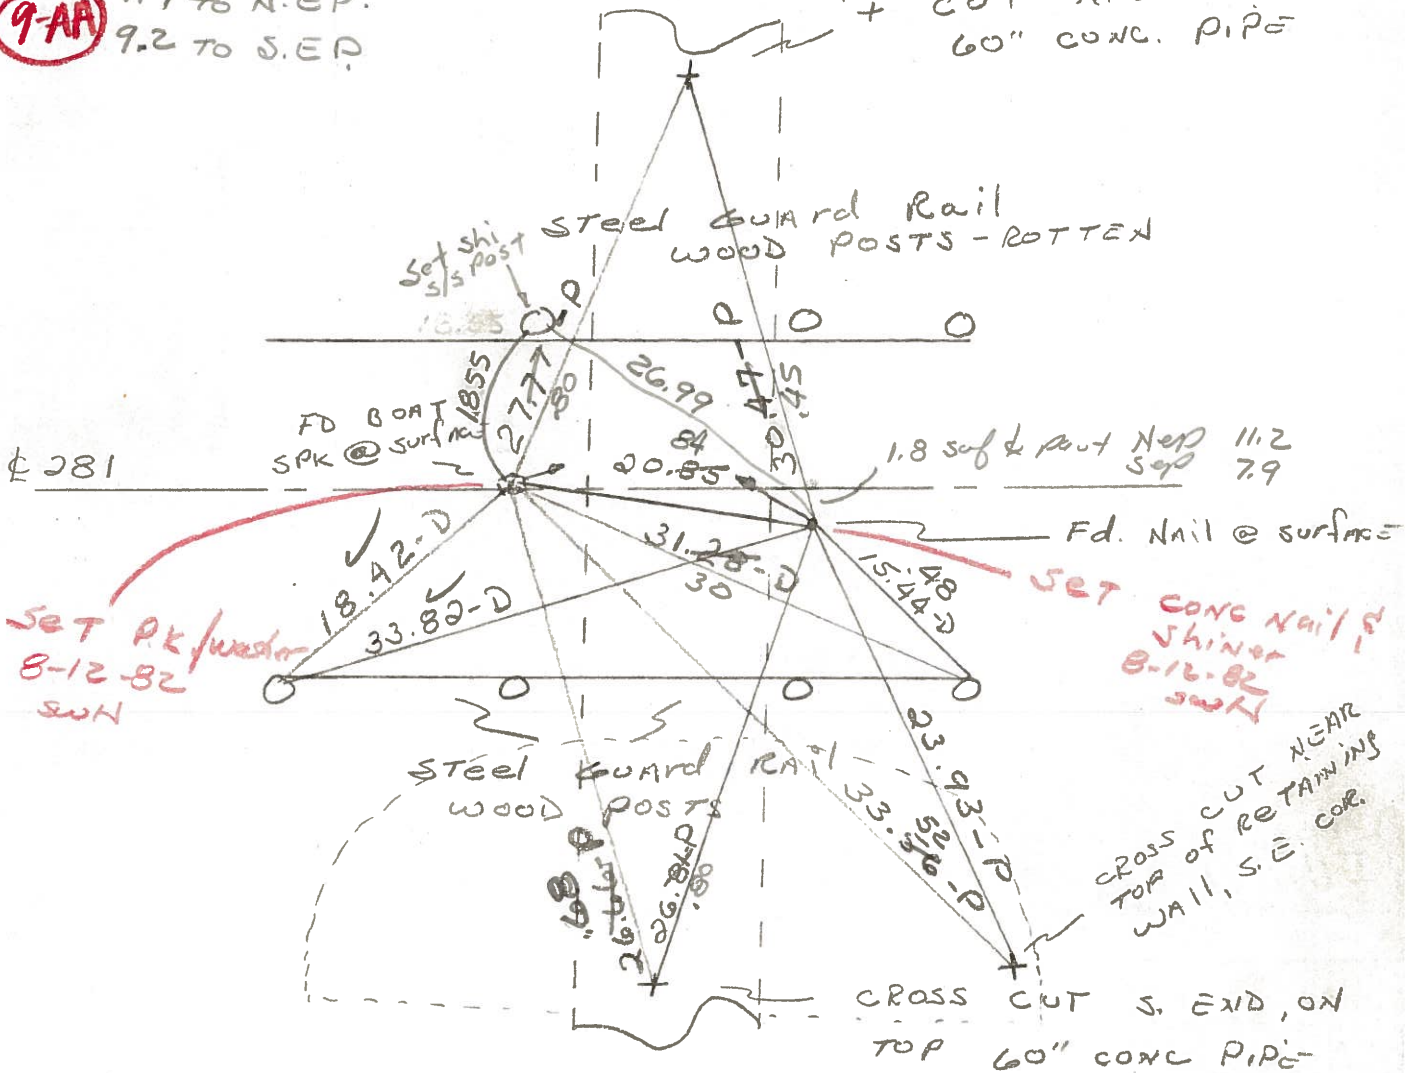 9-AA
TO N.EP.
9.2 TO S.EP.
+ CUT
60" CONC. PIPE
STeel GUARd RAil
WOOD POSTS - ROTTEN
Set shi
s/s post
P
P
1855
27.77
.80
26.99
30.47
.45
FD BOAT
SPK @ surface
84
20.85
1.8 S of ℄ pavt Nep 11.2
Sep 7.9
℄ 281
Fd. NAil @ surface
18.42-D
33.82-D
31.28-D
30
.48
15.44-D
SeT P.K/washer
8-12-82
SWH
SeT CONC NAil &
Shiner
8-12-82
SWH
STeel GUARd RAil
WOOD POSTS
23.93-P
33.516-P
52
.89
26.81-P
.80
CROSS CUT NEAR
TOP of RETAINING
WAll, S.E. COR.
CROSS CUT S. END, ON
TOP 60" CONC PIPE